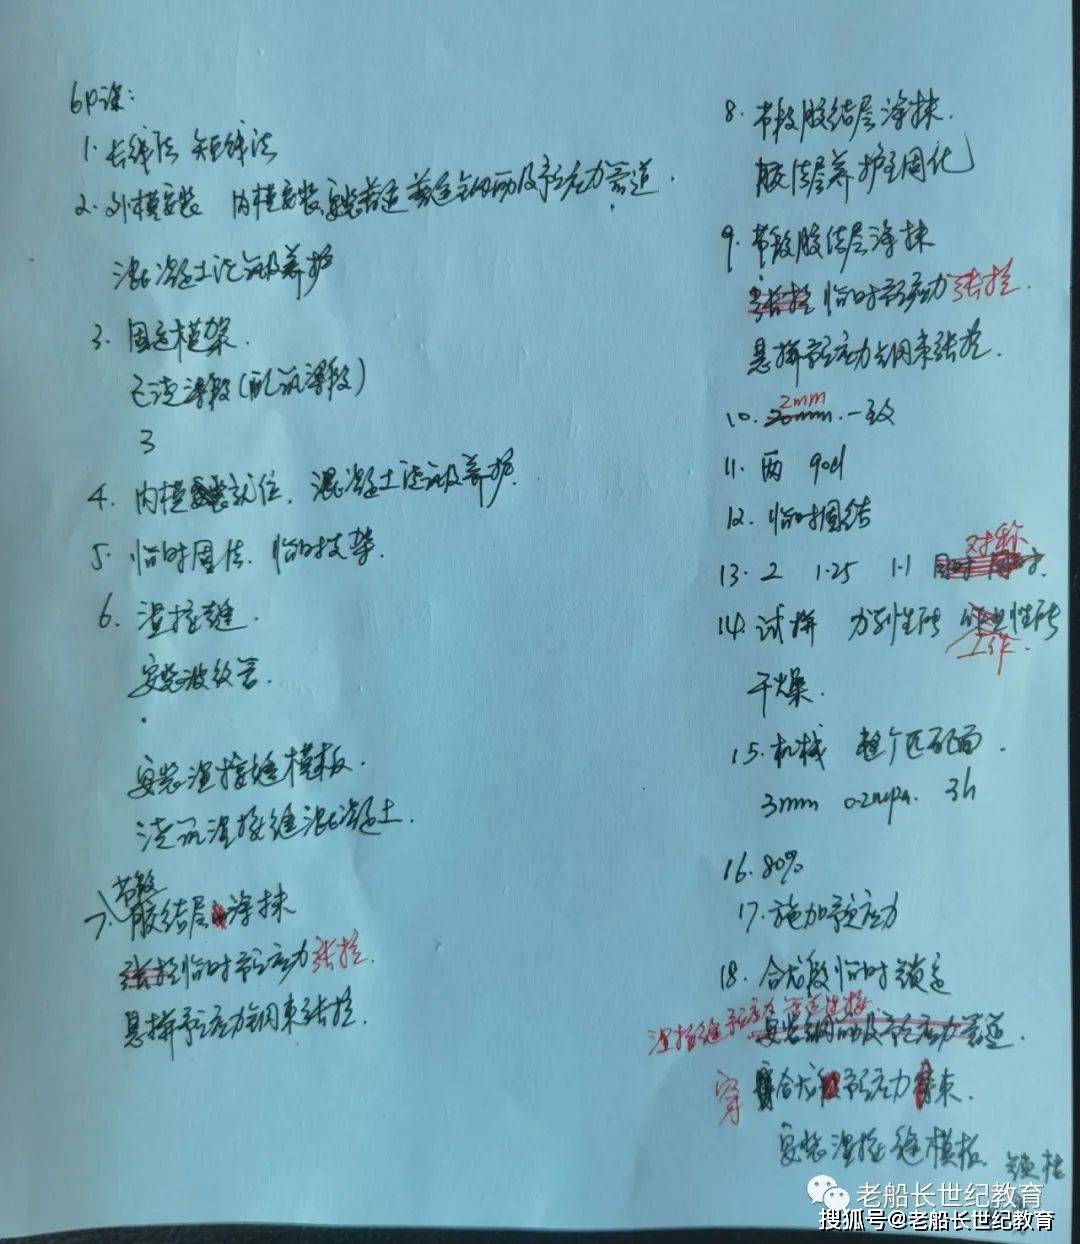 6P课:
1. 长线法 短线法
2. 外模安装 内模安装 安装普通钢筋及预应力管道.
混凝土浇筑及养护
3. 固定模架.
已浇梁段(配筑梁段)
3
4. 内模就位. 混凝土浇筑及养护.
5. 临时固结. 临时支架.
6. 湿接缝.
安装波纹管.
安装湿接缝模板.
浇筑湿接缝混凝土.
7. 节段胶结层涂抹
张拉临时预应力张拉.
悬拼预应力钢束张拉.
8. 节段胶结层涂抹.
胶结层养护至固化
9. 节段胶结层涂抹
张拉临时预应力张拉.
悬拼预应力钢束张拉.
2mm
10. 20mm. 一致
11. 两 90d
12. 临时固结
对称
13. 2 1.25 1.1
14. 试拼 力学性能 作业性能
工作.
干燥.
15. 机械 整个匹配面.
3mm 0.2mpa. 3h
16. 80%
17. 施加预应力
18. 合龙段临时锁定
湿接缝预应力管道连接
安装钢筋及预应力管道.
穿 合龙预应力束.
安装湿接缝模板.
老船长世纪教育
搜狐号@老船长世纪教育